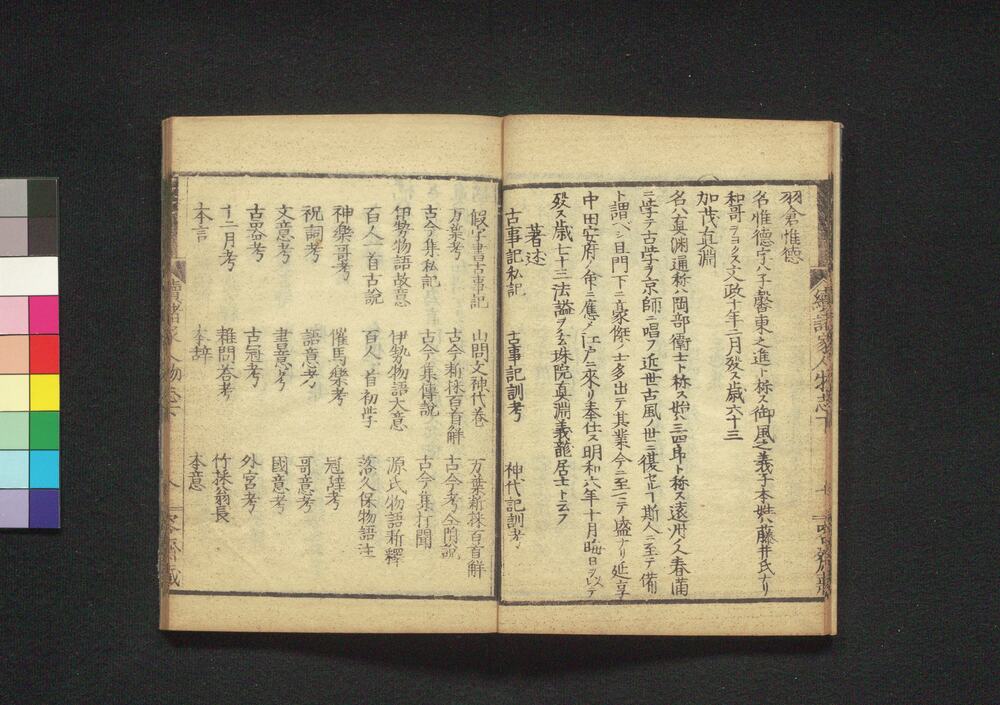 續諸家人物志下
羽倉惟徳
名惟徳字ハ子馨東之進ト称ス御風之義子本姓ハ藤井氏ナリ
和哥ヲヨクス文政十年二月殁ス歳六十三
加茂真淵
名ハ真渊通称ハ岡部衛士ト称ス始ハ三四郎ト称ス遠州ノ人春満
ニ学テ古学ヲ京師ニ唱フ近世古風ノ世ニ復セルヿ斯人ニ至テ備ル
ト謂ベシ且門下ニ豪傑ノ士多出テ其業今ニ至ニテ盛ナリ延享
中田安府ノ命ニ應メ江戸ニ來リ奉仕ス明和六年十月晦日ヲ以テ
殁ス歳七十三法謚ヲ玄珠院真渊義龍居士ト云フ
著述
古事記私記 古事記訓考 神代記訓考
假字書古事記 山問文神代巻 万葉新採百首解
万葉考 古今新採百首解 古今考
古今集私記 古今集傳説 古今集打聞
伊勢物語故意 伊勢物語大意 源氏物語新釋
百人一首古説 百人一首初学 落久保物語注
神樂哥考 催馬樂考 冠辞考
祝詞考 語意考 哥意考
文意考 書意考 國意考
古器考 古冠考 外宮考
十二月考 雜問答考 竹採翁長
本言 本辞 本意
續諸家人物志下